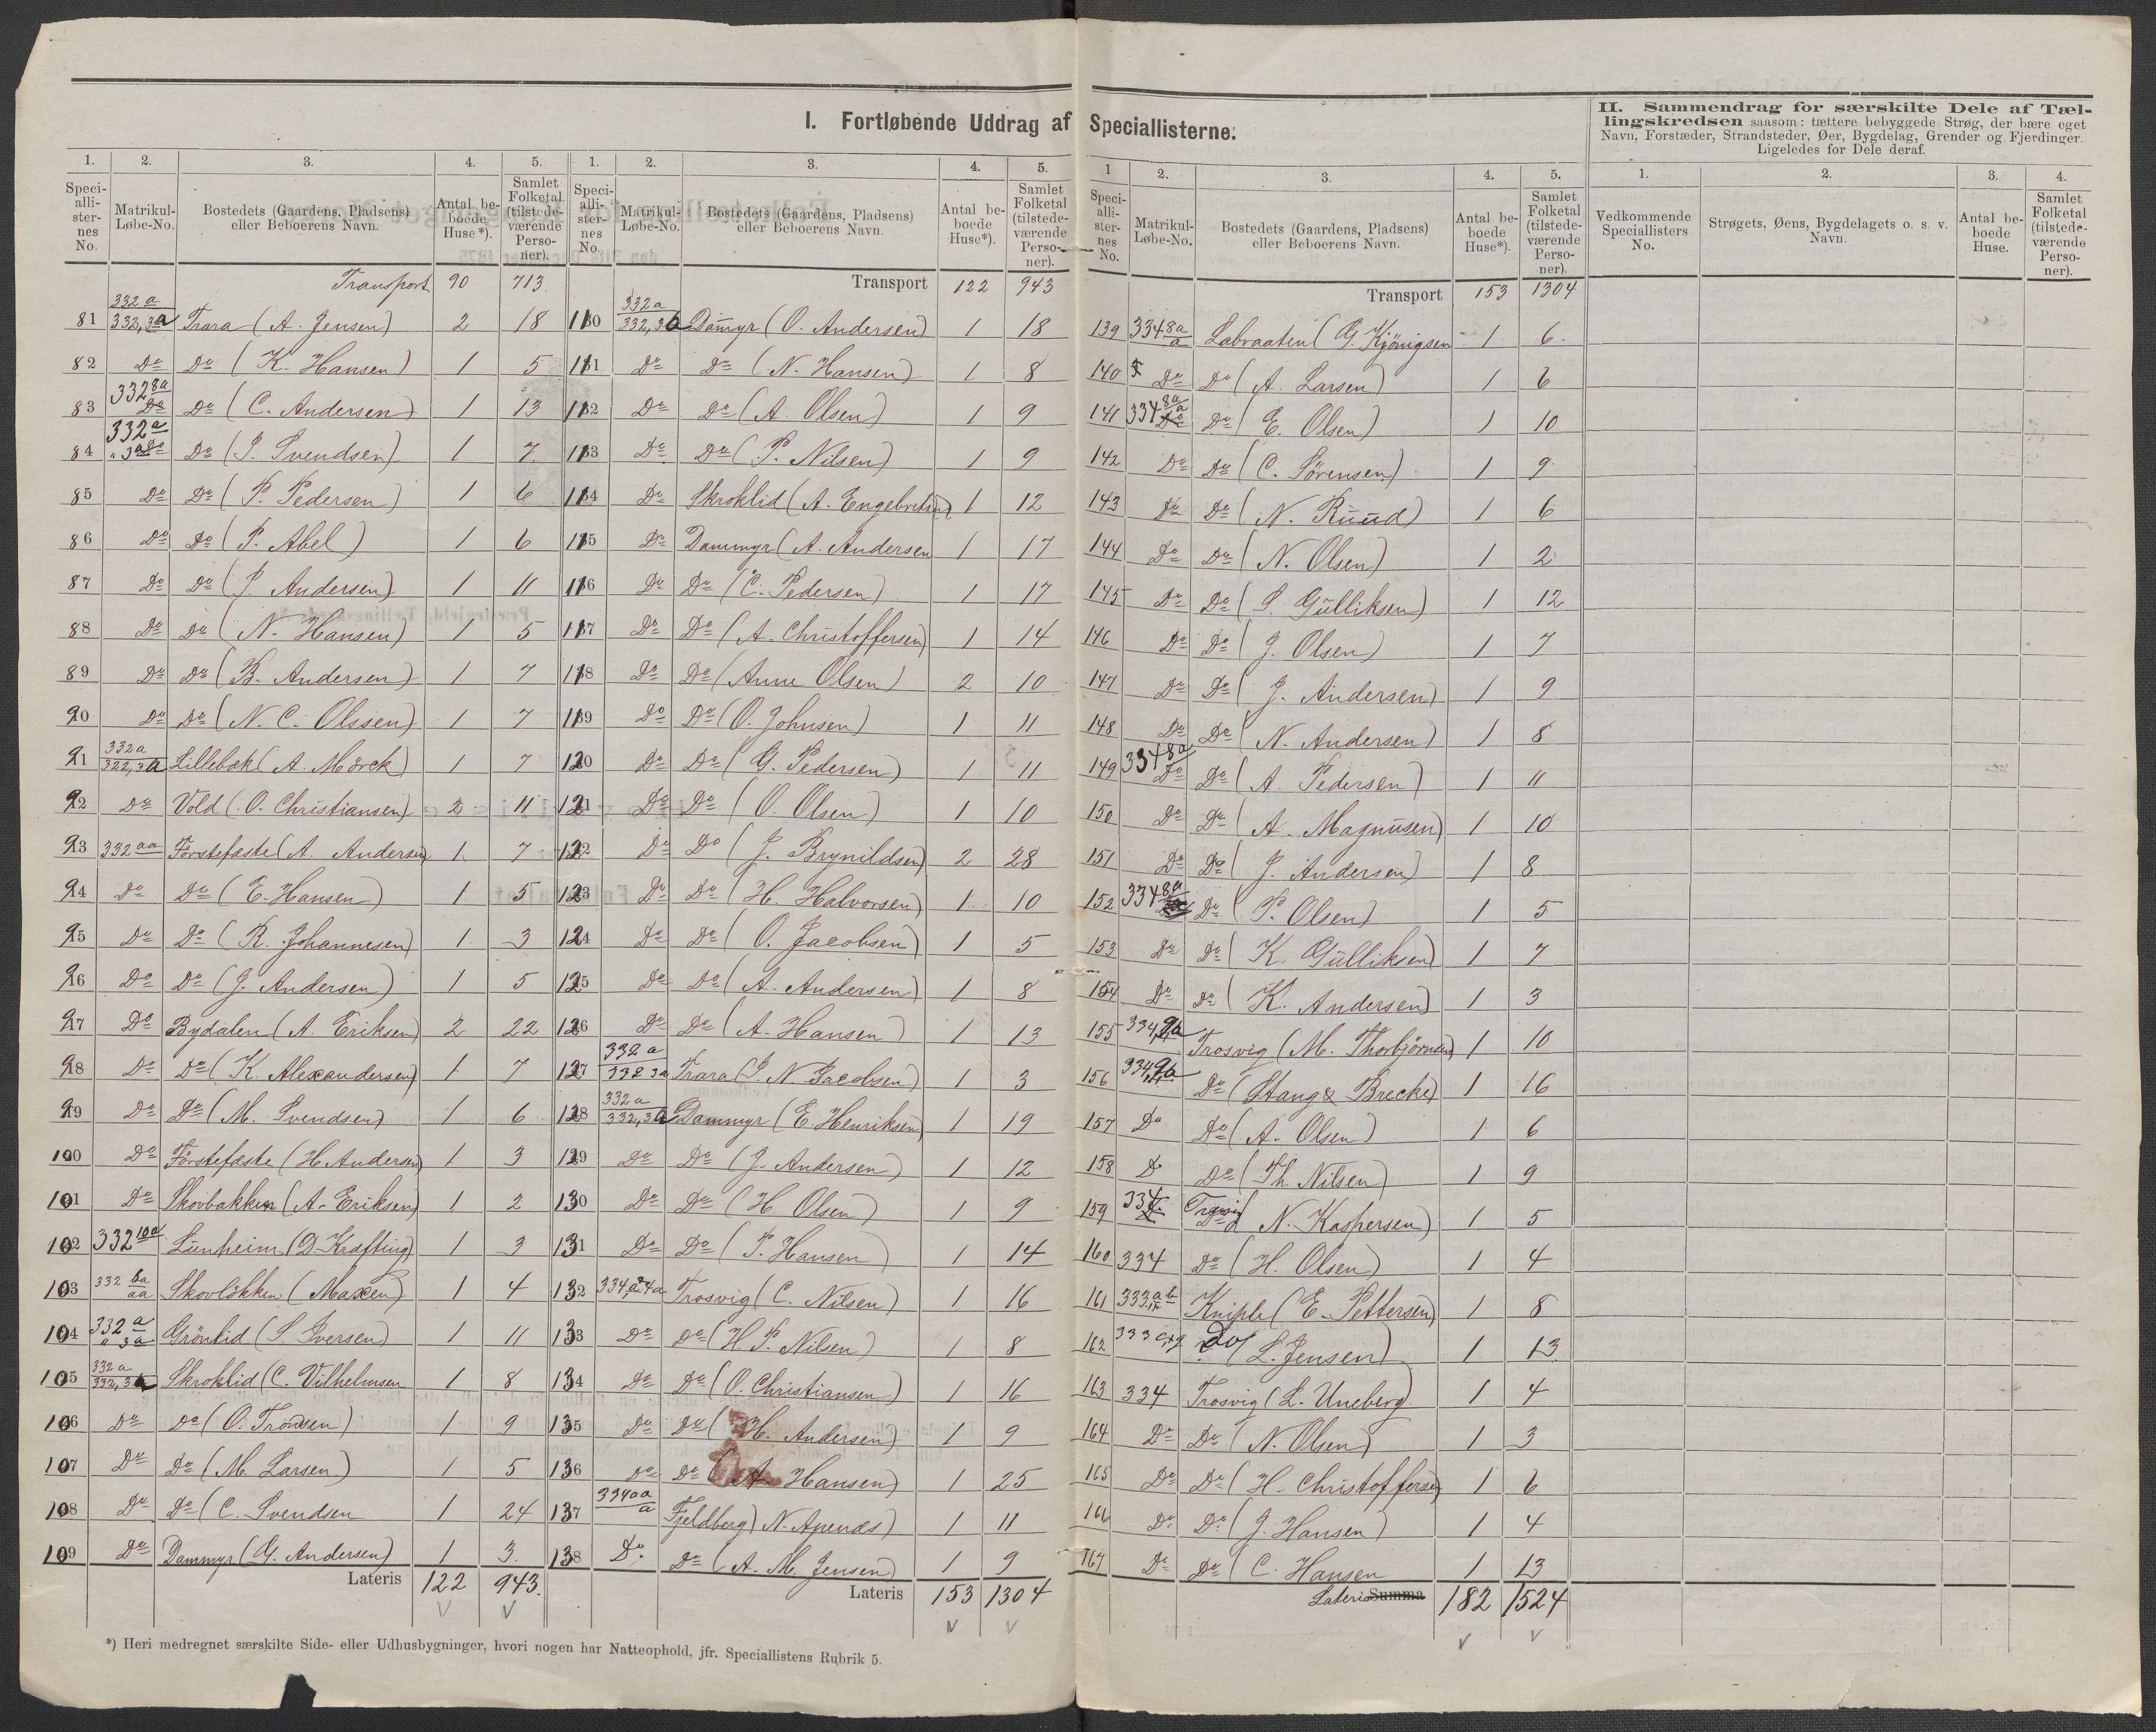 I. Fortløbende Uddrag af Speciallisterne.
1. 2. 3. 4. 5.
Speciallisternes No. Matrikul-Løbe-No. Bostedets (Gaardens, Pladsens) eller Beboerens Navn. Antal beboede Huse*). Samlet Folketal (tilstedeværende Personer).
Transport 90 713
81 332a 332,3a Trara (A. Jensen) 2 18
82 Do Do (K. Hansen) 1 5
83 332 8a Do (C. Andersen) 1 13
84 332a " 3a Do (J. Svendsen) 1 7
85 Do Do (P. Pedersen) 1 6
86 Do Do (P. Abel) 1 6
87 Do Do (P. Andersen) 1 11
88 Do Do (N. Hansen) 1 5
89 Do Do (B. Andersen) 1 7
90 Do Do (N. C. Olssen) 1 7
91 332a 322,3a Lillebæk (A. Mörck) 1 7
92 Do Vold (O. Christiansen) 2 11
93 332 aa Förstefæste (A. Andersen) 1 7
94 Do Do (E. Hansen) 1 5
95 Do Do (R. Johannesen) 1 3
96 Do Do (J. Andersen) 1 5
97 Do Bydalen (A. Eriksen) 2 22
98 Do Do (K. Alexandersen) 1 7
99 Do Do (M. Svendsen) 1 6
100 Do Förstefæste (H. Andersen) 1 3
101 Do Skovbakken (A. Eriksen) 1 2
102 332 10a Lunheim (D. Krafting) 1 3
103 332 ba aa Skovlökken (Maxen) 1 4
104 332 a " 3a Grönlid (S. Iversen) 1 11
105 332 a 332,3a Skroklid (C. Vilhelmsen 1 8
106 Do Do (O. Trondsen) 1 9
107 Do Do (M. Larsen) 1 5
108 Do Do (C. Svendsen 1 24
109 Do Dammyr (G. Andersen) 1 3
Lateris 122 943
1. 2. 3. 4. 5.
Speciallisternes No. Matrikul-Løbe-No. Bostedets (Gaardens, Pladsens) eller Beboerens Navn. Antal beboede Huse*). Samlet Folketal (tilstedeværende Personer).
Transport 122 943
110 332a 332,3a Dammyr (O. Andersen) 1 18
111 Do Do (N. Hansen) 1 8
112 Do Do (A. Olsen) 1 9
113 Do Do (P. Nilsen) 1 9
114 Do Skroklid (A. Engebretsen) 1 12
115 Do Dammyr (A. Andersen 1 17
116 Do Do (C. Pedersen) 1 17
117 Do Do (A. Christoffersen) 1 14
118 Do Do (Anne Olsen) 2 10
119 Do Do (O. Johnsen) 1 11
120 Do Do (G. Pedersen) 1 11
121 Do Do (O. Olsen) 1 10
122 Do Do (J. Brynildsen) 2 28
123 Do Do (H. Halvorsen) 1 10
124 Do Do (O. Jacobsen) 1 5
125 Do Do (A. Andersen) 1 8
126 Do Do (A. Hansen) 1 13
127 332 a 332 3a Trara (J. N. Jacobsen) 1 3
128 332 a 332,3a Dammyr (E. Henriksen) 1 19
129 Do Do (J. Andersen) 1 12
130 Do Do (H. Olsen) 1 9
131 Do Do (P. Hansen) 1 14
132 334,a 4a Trosvig (C. Nilsen) 1 16
133 Do Do (H. P. Nilsen) 1 8
134 Do Do (O. Christiansen) 1 16
135 Do Do (H. Andersen) 1 9
136 Do Do (A. Hansen) 1 25
137 334 aa a Fjeldberg) N. Apenæs) 1 11
138 Do Do (A. M. Jensen) 1 9
Lateris 153 1304
1 2. 3. 4. 5.
Speciallisternes No. Matrikul-Løbe-No. Bostedets (Gaardens, Pladsens) eller Beboerens Navn. Antal beboede Huse*). Samlet Folketal (tilstedeværende Personer).
Transport 153 1304
139 334 8a a Labraaten (G. Kjönigsen 1 6
140 Do Do (A. Larsen) 1 6
141 334 8a a Do (E. Olsen) 1 10
142 Do Do (C. Sörensen) 1 9
143 Do Do (N. Ruud) 1 6
144 Do Do (N. Olsen) 1 2
145 Do Do (S. Gulliksen) 1 12
146 Do Do (J. Olsen) 1 7
147 Do Do (J. Andersen) 1 9
148 Do Do (N. Andersen) 1 8
149 334 8a Do Do (A. Pedersen) 1 11
150 Do Do (A. Magnusen) 1 10
151 Do Do (J. Andersen) 1 8
152 334 8a Do (P. Olsen) 1 5
153 Do Do (K. Gulliksen) 1 7
154 Do Do (K. Andersen) 1 3
155 334,9a Trosvig (M. Thorbjörnsen) 1 10
156 334,9a Do (Stang & Brecke) 1 16
157 Do Do (A. Olsen) 1 6
158 Do Do (Th. Nilsen) 1 9
159 334 Trosvig N. Kaspersen) 1 5
160 334 Do (H. Olsen) 1 4
161 333 ab Kniple (E. Pettersen) 1 8
162 333 Do (L. Jensen) 1 13
163 334 Trosvig (L. Uneberg) 1 4
164 Do Do (N. Olsen) 1 3
165 Do Do (H. Christoffersen) 1 6
166 Do Do (J. Hansen) 1 4
167 Do Do (C. Hansen 1 13
Lateris Summa 182 1524
II. Sammendrag for særskilte Dele af Tællingskredsen saasom: tættere bebyggede Strøg, der bære eget
Navn, Forstæder, Strandsteder, Øer, Bygdelag, Grender og Fjerdinger.
Ligeledes for Dele deraf.
1. 2. 3. 4.
Vedkommende Speciallisters No. Strøgets, Øens, Bygdelagets o. s. v. Navn. Antal beboede Huse. Samlet Folketal (tilstedeværende Personer).
*) Heri medregnet særskilte Side- eller Udhusbygninger, hvori nogen har Natteophold, jfr. Speciallistens Rubrik 5.